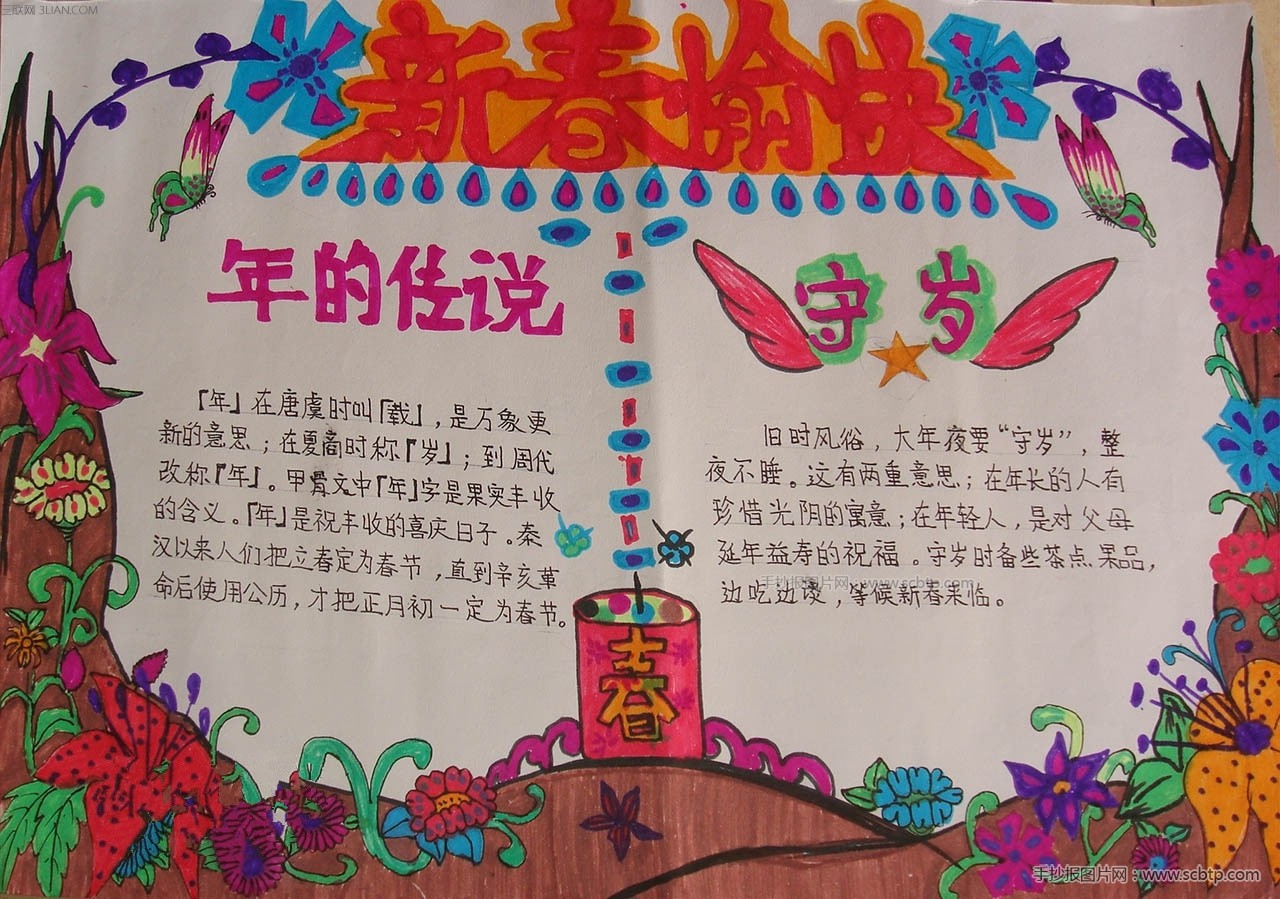 三联网 3LIAN.COM
新春愉快
年的传说
『年』在唐虞时叫『载』，是万象更
新的意思；在夏商时称『岁』；到周代
改称『年』。甲骨文中『年』字是果实丰收
的含义。『年』是祝丰收的喜庆日子。秦
汉以来人们把立春定为春节，直到辛亥革
命后使用公历，才把正月初一定为春节。
守岁
旧时风俗，大年夜要“守岁”，整
夜不睡。这有两重意思；在年长的人有
珍惜光阴的寓意；在年轻人，是对父母
延年益寿的祝福。守岁时备些茶点果品，
手抄报图片网：www.scbtp.com
边吃边谈，等候新春来临。
春
手抄报图片网：www.scbtp.com